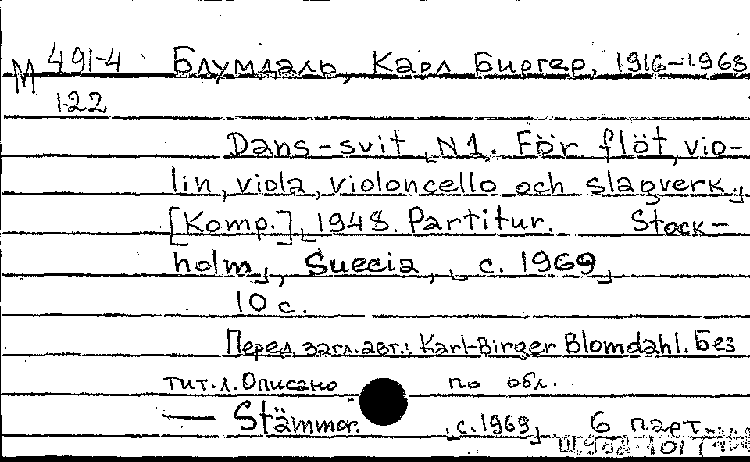 М 491-4 Блумдаль, Карл Биргер, 1916-1968
122
Dans-svit ⌊N1. För flöt, vio-
lin, viola, violoncello och slagverk⌋
[Komp.] ⌊1948. Partitur. Stock-
holm⌋, Suecia, ⌊c. 1969⌋
10 с.
Перед загл. авт.: Karl-Birger Blomdahl. Без
тит. л. Описано по обл.
— Stämmor. ⌊c. 1969⌋ 6 парт.